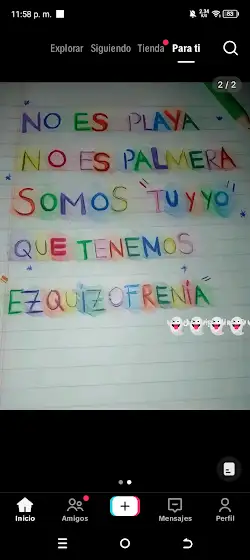 11:58 p. m.
2,34 K/S
83
Explorar Siguiendo Tienda Para ti
2 / 2
NO ES PLAYA
NO ES PALMERA
SOMOS "TU Y YO"
QUE TENEMOS
EZQUIZOFRENIA
Inicio Amigos Mensajes Perfil